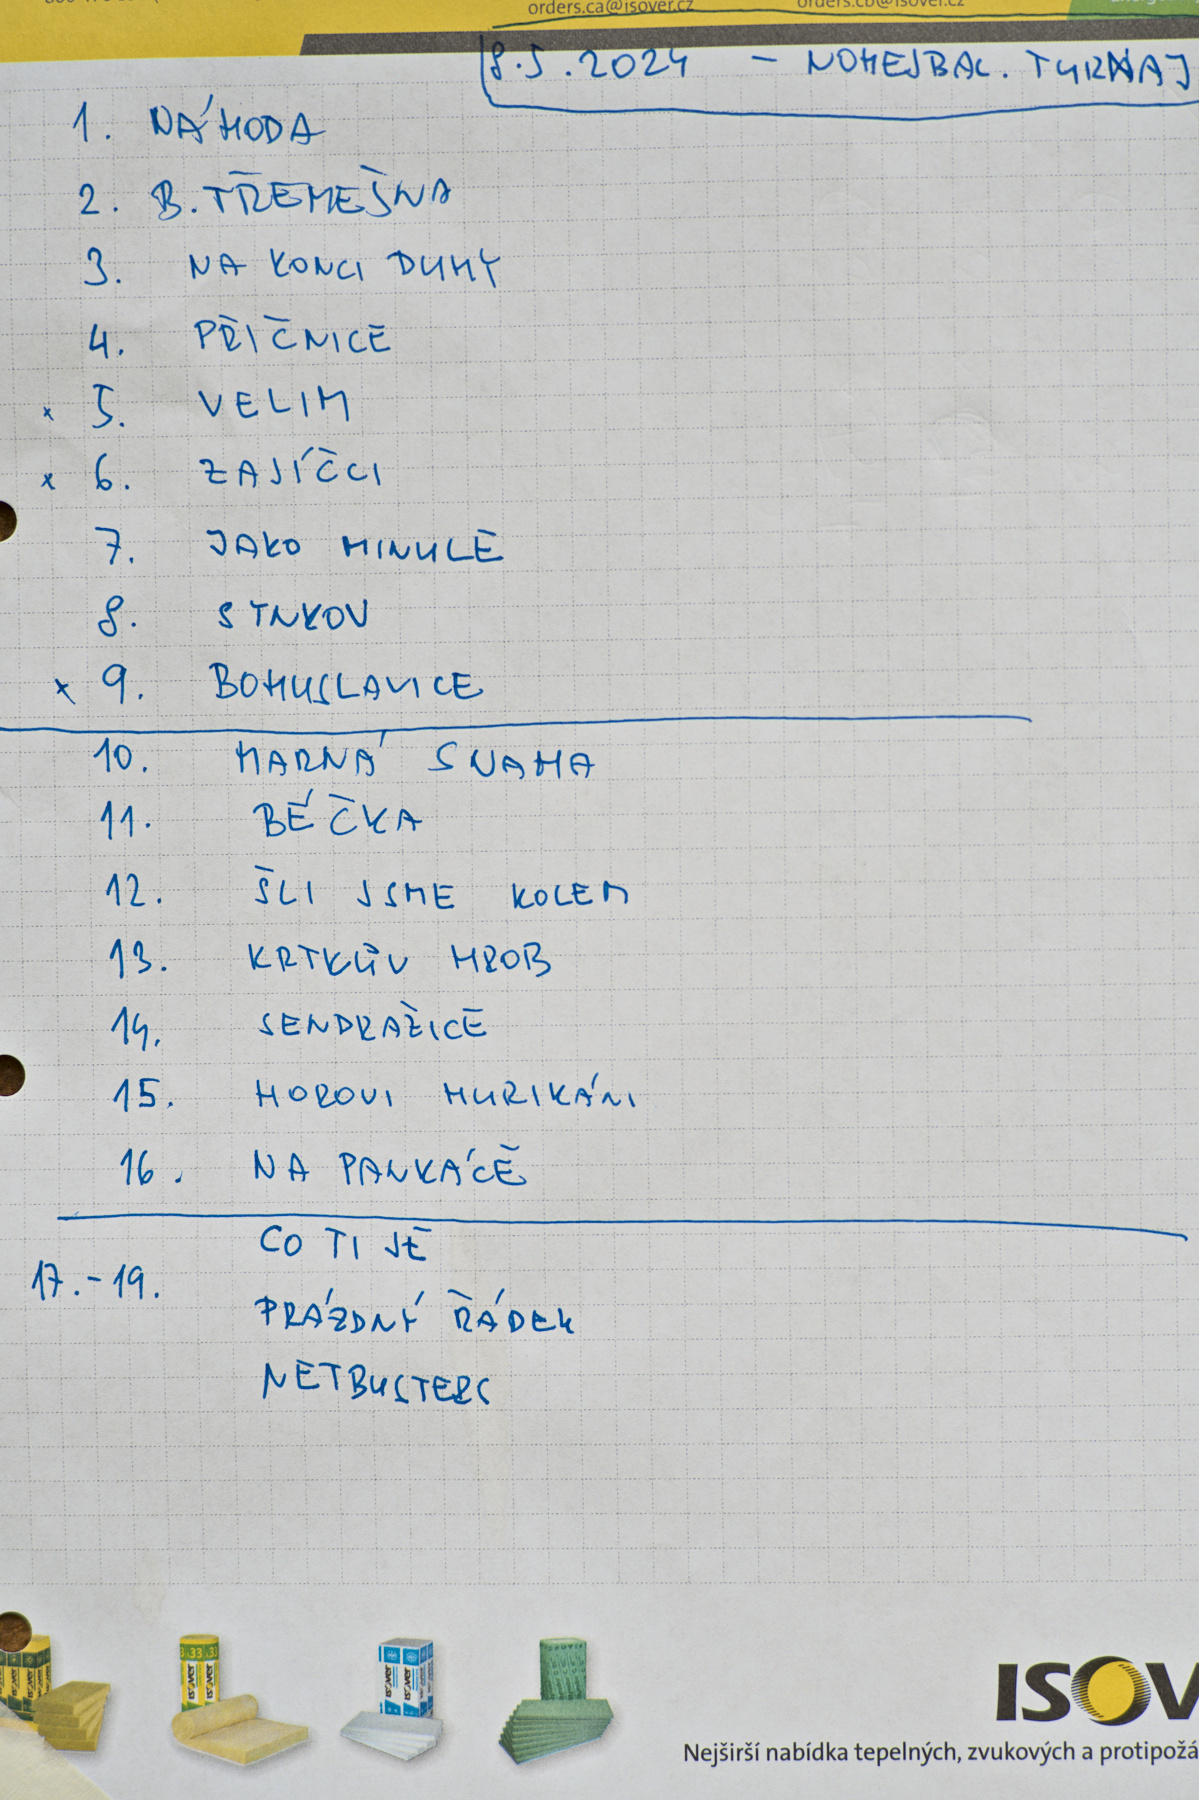 orders.ca@isover.cz orders.cb@isover.cz
8.5.2024 - NOHEJBAL. TURNAJ
1. NÁHODA
2. B. TŘEMEŠNA
3. NA KONCI DUHY
4. PŘÍČNICE
x 5. VELIM
x 6. ZAJÍČCI
7. JAKO MINULE
8. STNKOV
x 9. BOHUSLAVICE
10. MARNÁ SNAHA
11. BÉČKA
12. ŠLI JSME KOLEM
13. KRTKŮV HROB
14. SENDRAŽICE
15. HOROVI HURIKÁNI
16. NA PANKÁCĚ
CO TI JE
17.-19.
PRÁZDNÝ ŘÁDEK
NETBUSTERS
3.33 33
ISOVER
ISOVER ISOVER
ISOV
Nejširší nabídka tepelných, zvukových a protipožá